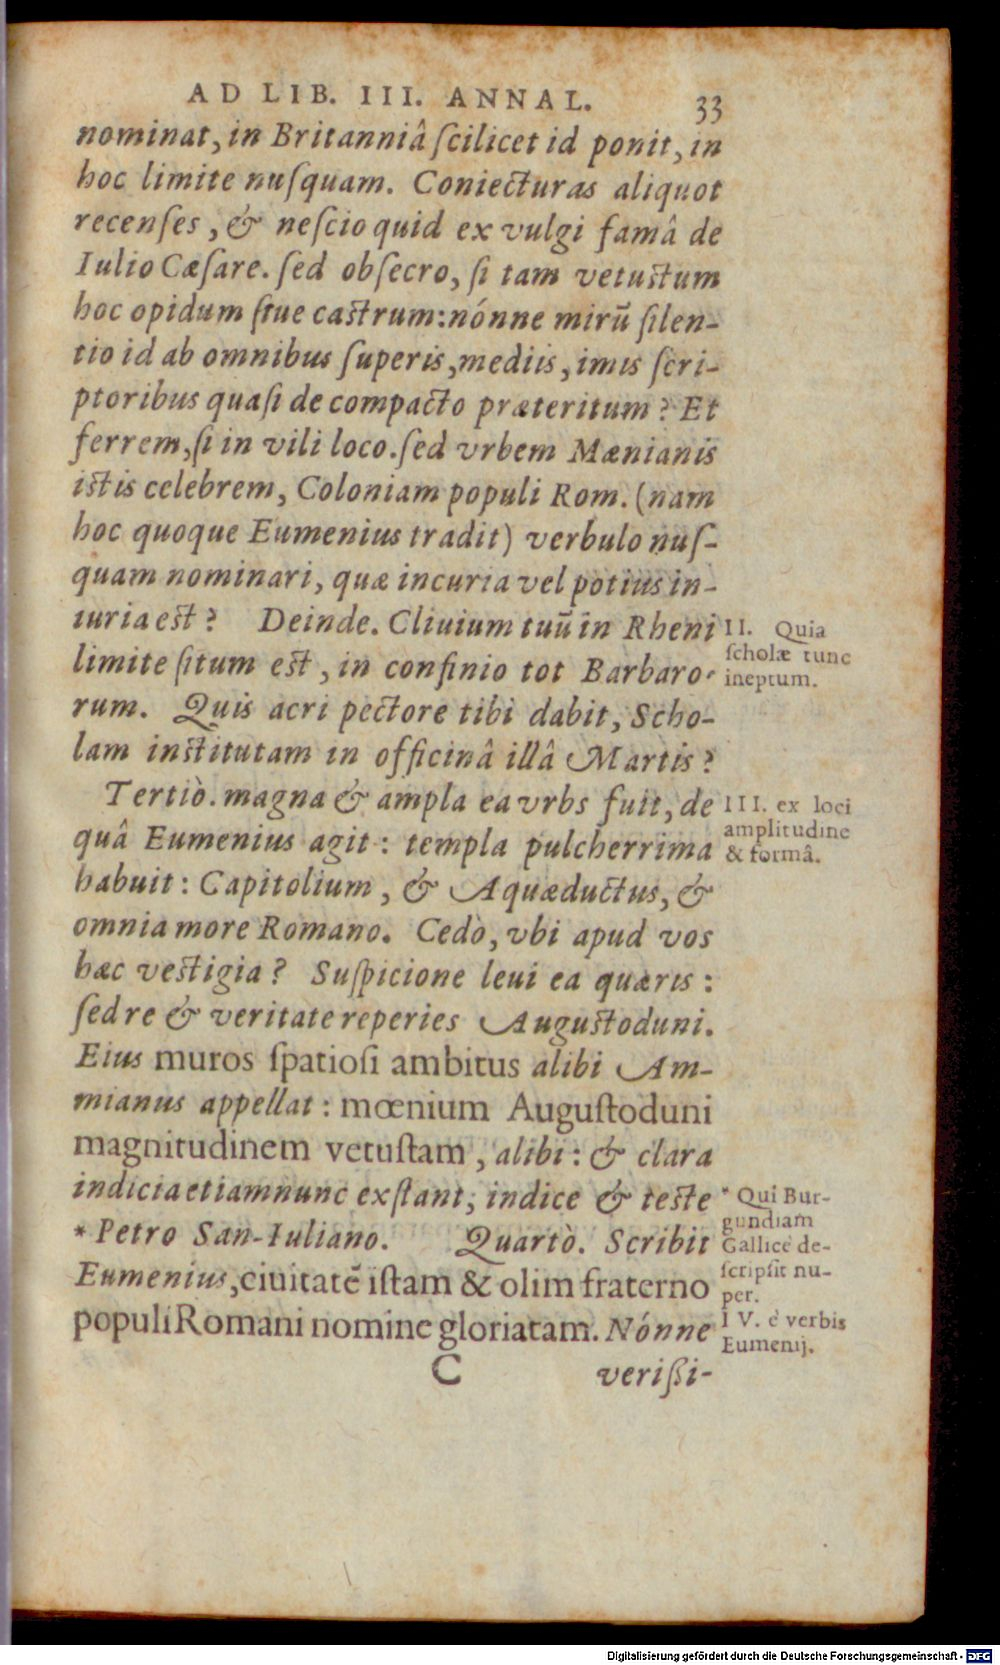 AD LIB. III. ANNAL. 33
nominat, in Britanniâ ſcilicet id ponit, in
hoc limite nuſquam. Coniecturas aliquot
recenſes, & neſcio quid ex vulgi famâ de
Iulio Cæſare. ſed obſecro, ſi tam vetuſtum
hoc opidum ſiue caſtrum: nónne mirū ſilen-
tio id ab omnibus ſuperis, mediis, imis ſcri-
ptoribus quaſi de compacto præteritum? Et
ferrem, ſi in vili loco. ſed vrbem Mænianis
iſtis celebrem, Coloniam populi Rom. (nam
hoc quoque Eumenius tradit) verbulo nuſ-
quam nominari, quæ incuria vel potius in-
iuria eſt? Deinde. Cliuium tuū in Rheni
limite ſitum eſt, in confinio tot Barbaro-
rum. Quis acri pectore tibi dabit, Scho-
lam inſtitutam in officinâ illâ Martis?
II. Quia
ſcholæ tunc
ineptum.
Tertiò. magna & ampla ea vrbs fuit, de
quâ Eumenius agit: templa pulcherrima
habuit: Capitolium, & Aquæductus, &
omnia more Romano. Cedò, vbi apud vos
hæc veſtigia? Suſpicione leui ea quæris:
ſed re & veritate reperies Auguſtoduni.
Eius muros ſpatioſi ambitus alibi Am-
mianus appellat: mœnium Auguſtoduni
magnitudinem vetuſtam, alibi: & clara
indicia etiamnunc exſtant, indice & teſte
* Petro San-Iuliano. Quartò. Scribit
Eumenius, ciuitatē iſtam & olim fraterno
populi Romani nomine gloriatam. Nónne
III. ex loci
amplitudine
& formâ.
* Qui Bur-
gundiam
Gallicè de-
ſcripſit nu-
per.
IV. è verbis
Eumenij.
C veriſſi-
Digitalisierung gefördert durch die Deutsche Forschungsgemeinschaft - DFG